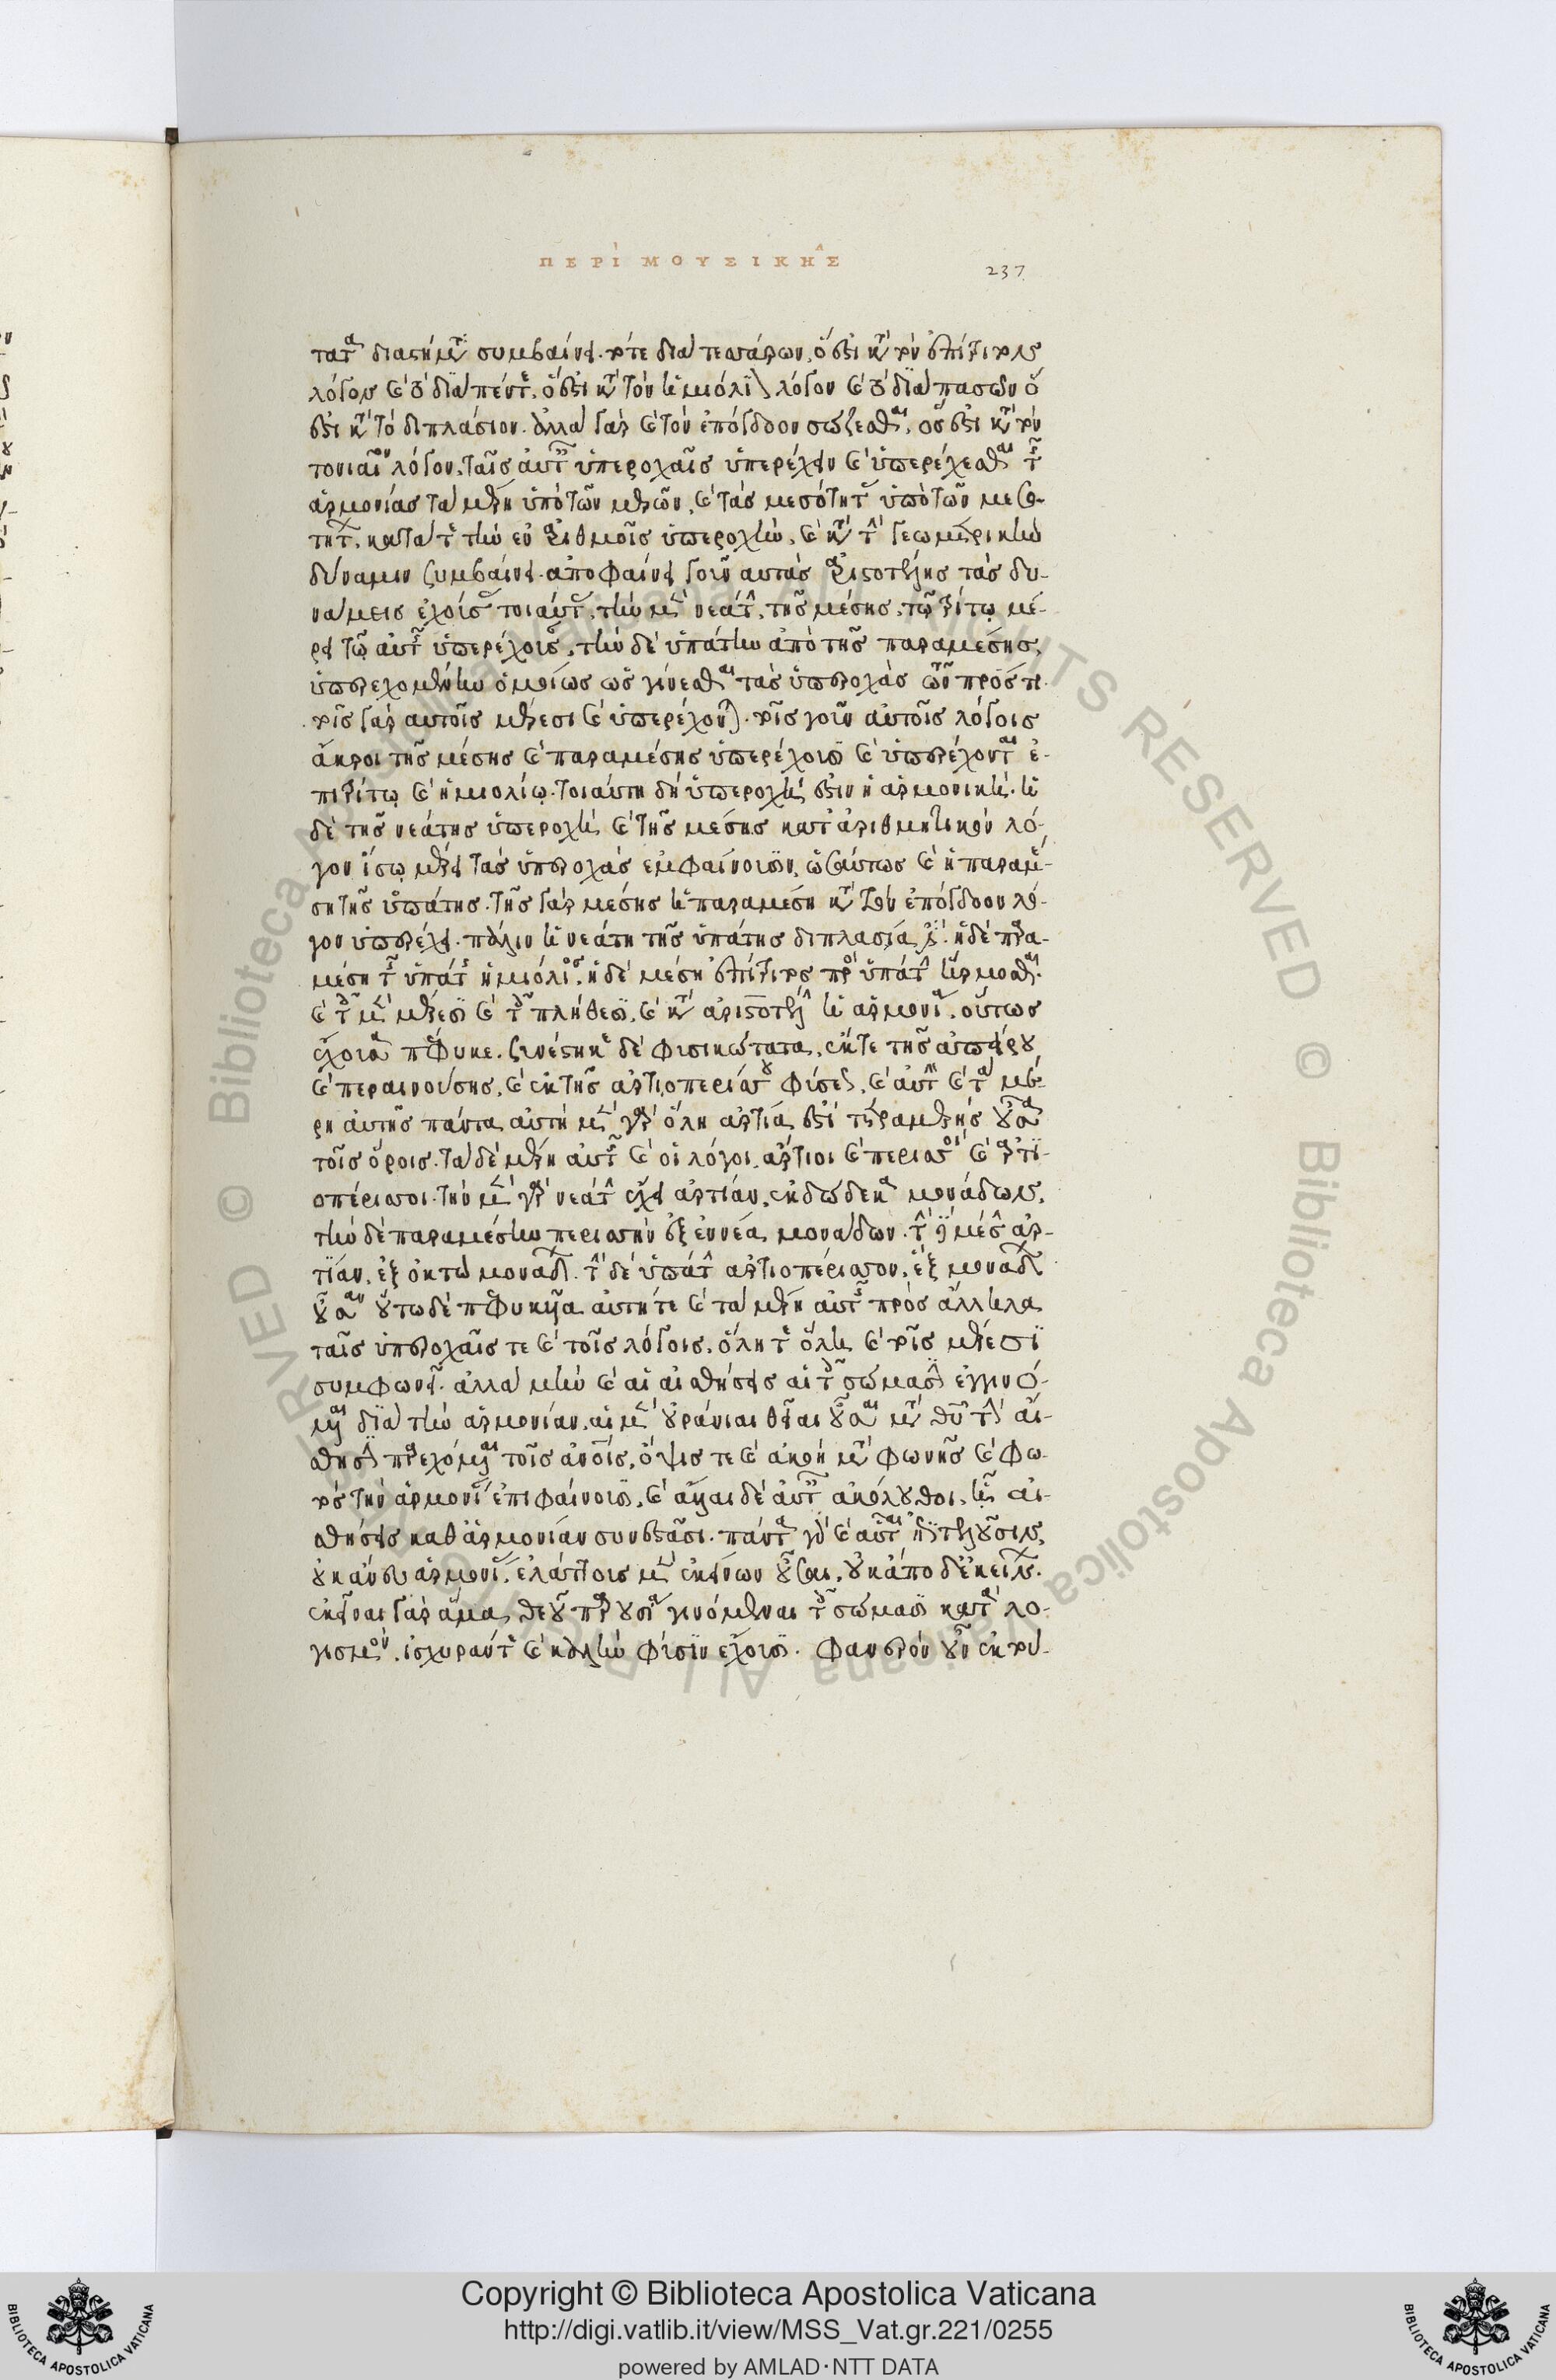 ΠΕΡῚ ΜΟΥΣΙΚΗ͂Σ
237
τατα διαστήματα συμβαίνει. τό τε διὰ τεσσάρων, ὅ ἐστι κατὰ τὸν ἐπίτριτον
λόγον καὶ τὸ διὰ πέντε, ὅ ἐστι κατὰ τὸν ἡμιόλιον λόγον καὶ τὸ διὰ πασῶν ὅ
ἐστι κατὰ τὸ διπλάσιον. ἀλλὰ γὰρ καὶ τὸν ἐπόγδοον σώζεσθαι, ὅς ἐστι κατὰ τὸν
τονιαῖον λόγον. ταῖς αὐταῖς ὑπεροχαῖς ὑπερέχειν καὶ ὑπερέχεσθαι τῆς
ἁρμονίας τὰ μέρη ὑπὸ τῶν μερῶν, καὶ τὰς μεσότητας ὑπὸ τῶν μεσο-
τήτων, κατά τε τὴν ἐν ἀριθμοῖς ὑπεροχὴν, καὶ κατὰ τὴν γεωμετρικὴν
δύναμιν συμβαίνει. ἀποφαίνει γοῦν αὐτὰς ἀριστοτέλης τὰς δυ-
νάμεις ἐχούσας τοιαύτας, τὴν μὲν νεάτην, τῆς μέσης, τῷ τρίτῳ μέ-
ρει τῷ αὐτῆς ὑπερέχουσαν, τὴν δὲ ὑπάτην ἀπὸ τῆς παραμέσης,
ὑπερεχομένην ὁμοίως ὡς γίνεσθαι τὰς ὑπεροχὰς τῶν πρός τι.
τοῖς γὰρ αὐτοῖς μέρεσι καὶ ὑπερέχονται. τοῖς γοῦν αὐτοῖς λόγοις
ἄκροι τῆς μέσης καὶ παραμέσης ὑπερέχουσι καὶ ὑπερέχονται ἐ-
πιτρίτῳ καὶ ἡμιολίῳ. τοιαύτη δὴ ὑπεροχή ἐστιν ἡ ἁρμονική. ἡ
δὲ τῆς νεάτης ὑπεροχὴ καὶ τῆς μέσης κατ' ἀριθμητικὸν λό-
γον ἴσῳ μέρει τὰς ὑπεροχὰς ἐμφαίνουσιν, ὡσαύτως καὶ ἡ παραμέ-
ση τῆς ὑπάτης. τῆς γὰρ μέσης ἡ παραμέση κατὰ τὸν ἐπόγδοον λό-
γον ὑπερέχει. πάλιν ἡ νεάτη τῆς ὑπάτης διπλασία ἐστί. ἡ δὲ παρα-
μέση τῆς ὑπάτης ἡμιόλιος, ἡ δὲ μέση ἐπίτριτος πρὸς ὑπάτην ἥρμοσται.
καὶ τοῖς μὲν μέρεσι καὶ τοῖς πλήθεσι, καὶ κατὰ ἀριστοτέλην ἡ ἁρμονία, οὕτως
ἔχουσα πέφυκε. συνέστηκε δὲ φυσικώτατα, ἔκ τε τῆς ἀπείρου
καὶ περαινούσης, καὶ ἐκ τῆς ἀρτιοπερίσσου φύσεως, καὶ αὐτὴ καὶ τὰ μέ-
ρη αὐτῆς πάντα, αὐτὴ μὲν γὰρ ὅλη ἀρτία ἐστὶ τετραμερὴς οὖσα
τοῖς ὅροις. τὰ δὲ μέρη αὐτῆς καὶ οἱ λόγοι ἄρτιοι καὶ περισσοὶ καὶ ἀρτι-
οπέρισσοι. τὴν μὲν γὰρ νεάτην ἔχει ἀρτίαν, ἐκ δώδεκα μονάδων,
τὴν δὲ παραμέσην περισσὴν ἐξ ἐννέα μονάδων. τὴν δὲ μέσην ἀρ-
τίαν, ἐξ ὀκτὼ μονάδων. τὴν δὲ ὑπάτην ἀρτιοπέρισσον, ἓξ μονάδων
οὖσαν οὕτω δὲ πεφυκυῖα αὐτή τε καὶ τὰ μέρη αὐτῆς πρὸς ἄλληλα
ταῖς ὑπεροχαῖς τε καὶ τοῖς λόγοις, ὅλη τε ὅλῃ καὶ τοῖς μέρεσι
συμφωνεῖ. ἀλλὰ μὴν καὶ αἱ αἰσθήσεις αἱ τοῖς σώμασιν ἐγγινό-
μεναι διὰ τὴν ἁρμονίαν, αἱ μὲν οὐράνιαι θεῖαι οὖσαι μετὰ θεοῦ τὴν αἴ-
σθησιν παρεχόμεναι τοῖς ἀνθρώποις, ὄψις τε καὶ ἀκοὴ μετὰ φωνῆς καὶ φω-
τὸς τὴν ἁρμονίαν ἐπιφαίνουσι, καὶ ἄλλαι δὲ αὐταῖς ἀκόλουθοι, ᾗ αἰ-
σθήσεις καθ' ἁρμονίαν συνεστᾶσι. πάντα γὰρ καὶ αὗται ἐπιτελοῦσιν,
οὐκ ἄνευ ἁρμονίας, ἐλάττους μὲν ἐκείνων οὖσαι, οὐκ ἀπὸ δ' ἐκείνων.
ἐκεῖναι γὰρ ἅμα θεοῦ παρουσίᾳ γινόμεναι τοῖς σώμασι κατὰ λο-
γισμὸν, ἰσχυράν τε καὶ καλὴν φύσιν ἔχουσι. φανερὸν οὖν ἐκ τού-
Copyright © Biblioteca Apostolica Vaticana
http://digi.vatlib.it/view/MSS_Vat.gr.221/0255
powered by AMLAD·NTT DATA